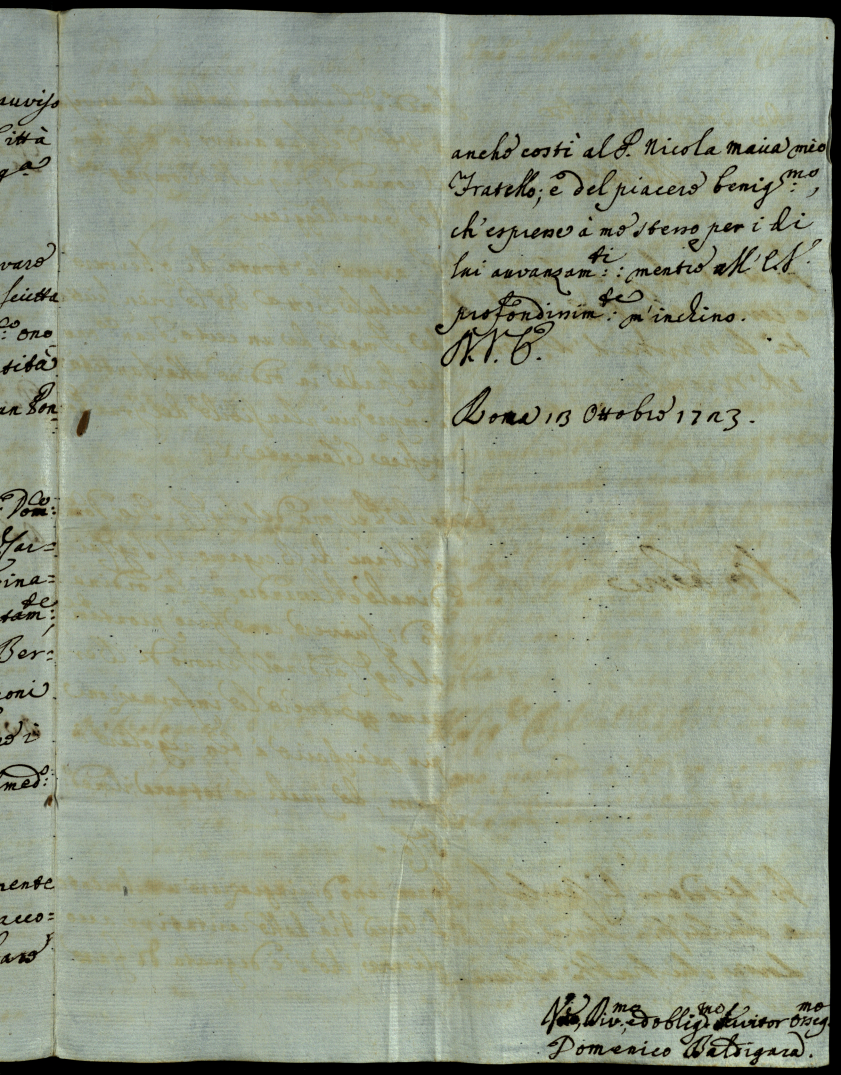 auviso
Città
ga
vare
sciutta
ono
tità
an Pon:
Dom:co
Far=
ina=
tam:te
Ber=
oni
i
med:o
mente
acco=
anche costì al P. Nicola Maria mio
Fratello; e del piacere benig:mo,
ch'espresse à me stesso per i di
lui auvanzam:ti: mentre all' E.V.
profondissim:te m'inchino.
Roma 13 Ottobre 1723.
Div:mo, ed oblig:mo Servitor Osseq:mo
Domenico Baldigara.